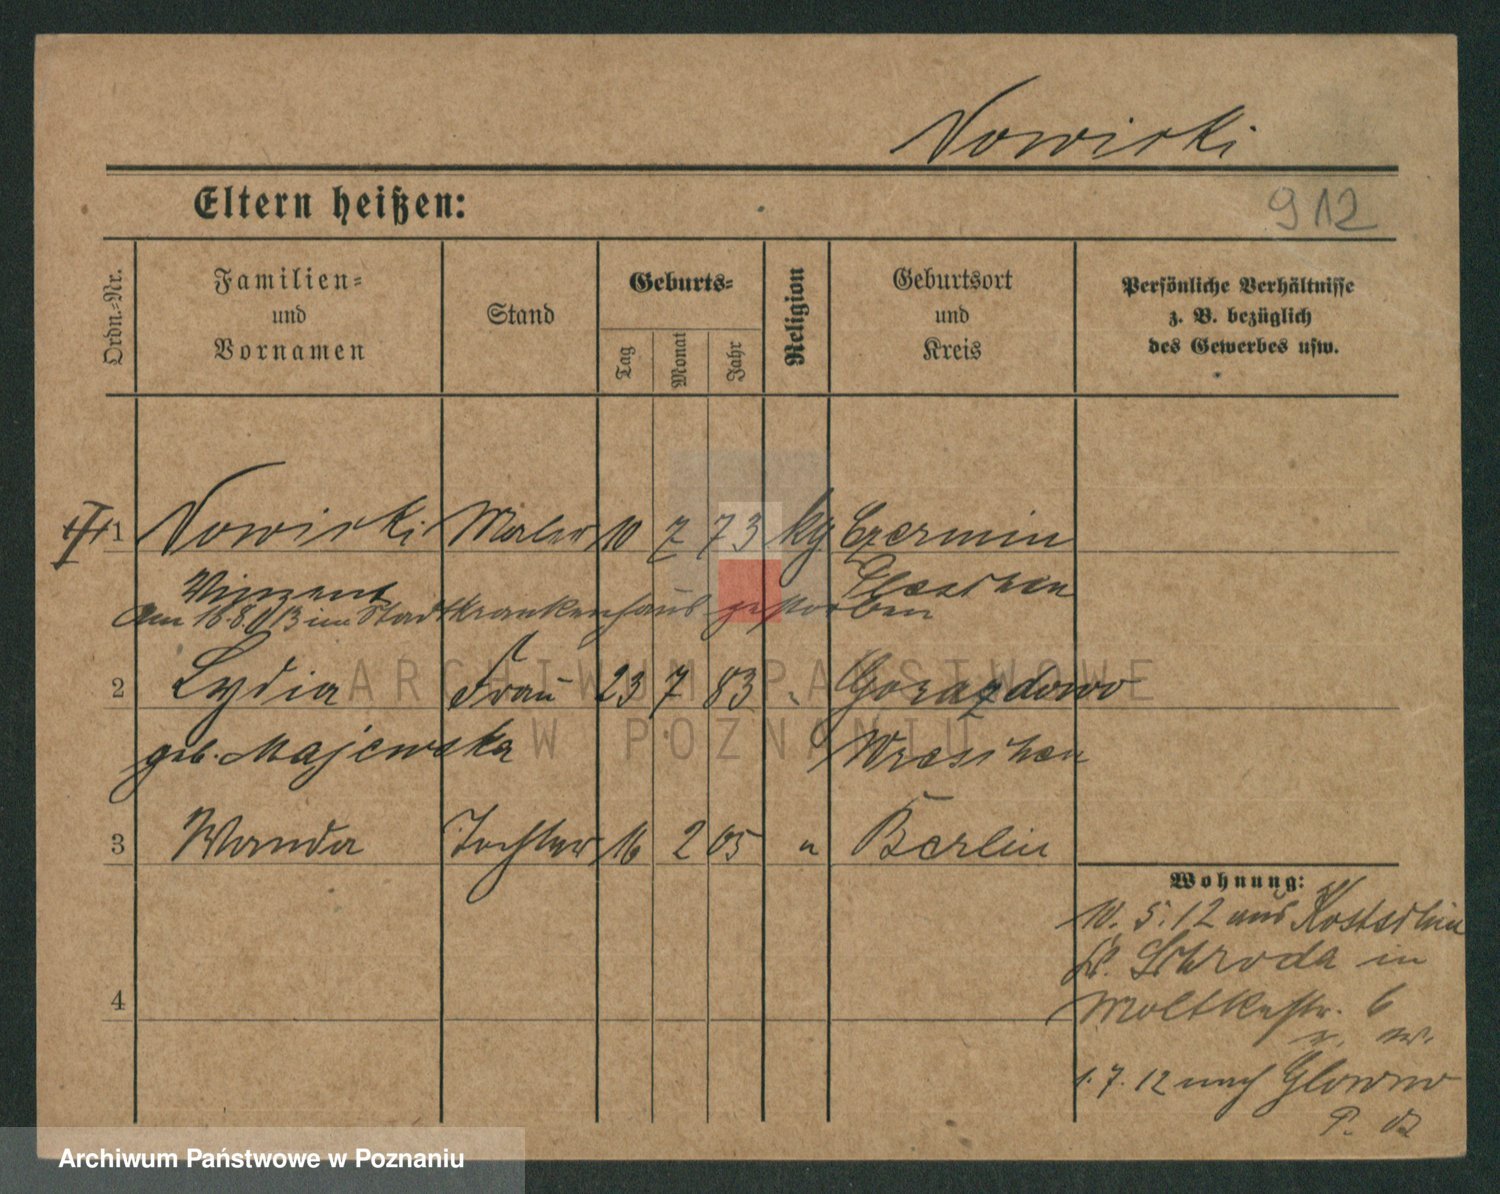 Nowicki
Eltern heißen:
912
Ordn.-Nr.
Familien-
und
Vornamen
Stand
Geburts-
Tag
Monat
Jahr
Religion
Geburtsort
und
Kreis
Persönliche Verhältnisse
z. B. bezüglich
des Gewerbes usw.
1 Nowicki Maler 10 7 73 kg Czermin
Vinzent Pleschen
Am 18.8.13 im Stadtkrankenhaus gestorben
2 Lydia Frau 23 7 83 " Gorazdowo
geb. Majewska Wreschen
3 Wanda Tochter 16 2 05 " Berlin
4
Wohnung:
10. 5. 12 aus Kostschin
Kr. Schroda in
Moltkestr. 6
1. 7. 12 nach Glowno
ARCHIWUM PAŃSTWOWE
W POZNANIU
Archiwum Państwowe w Poznaniu